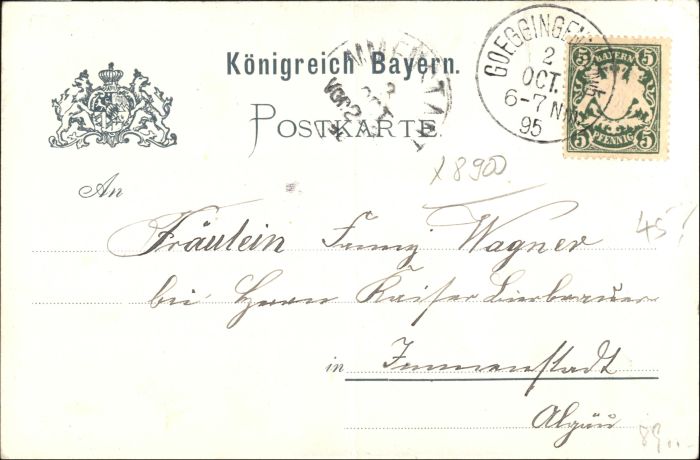 Königreich Bayern.
POSTKARTE
GOEGGINGEN
2
OCT.
6-7 N
95
5 5
BAYERN
PFENNIG
5 5
x8900
An
Fräulein Fanny Wagner
45
bei Herrn Kaiser Bierbrauer
in Immenstadt
Algäu
89..-